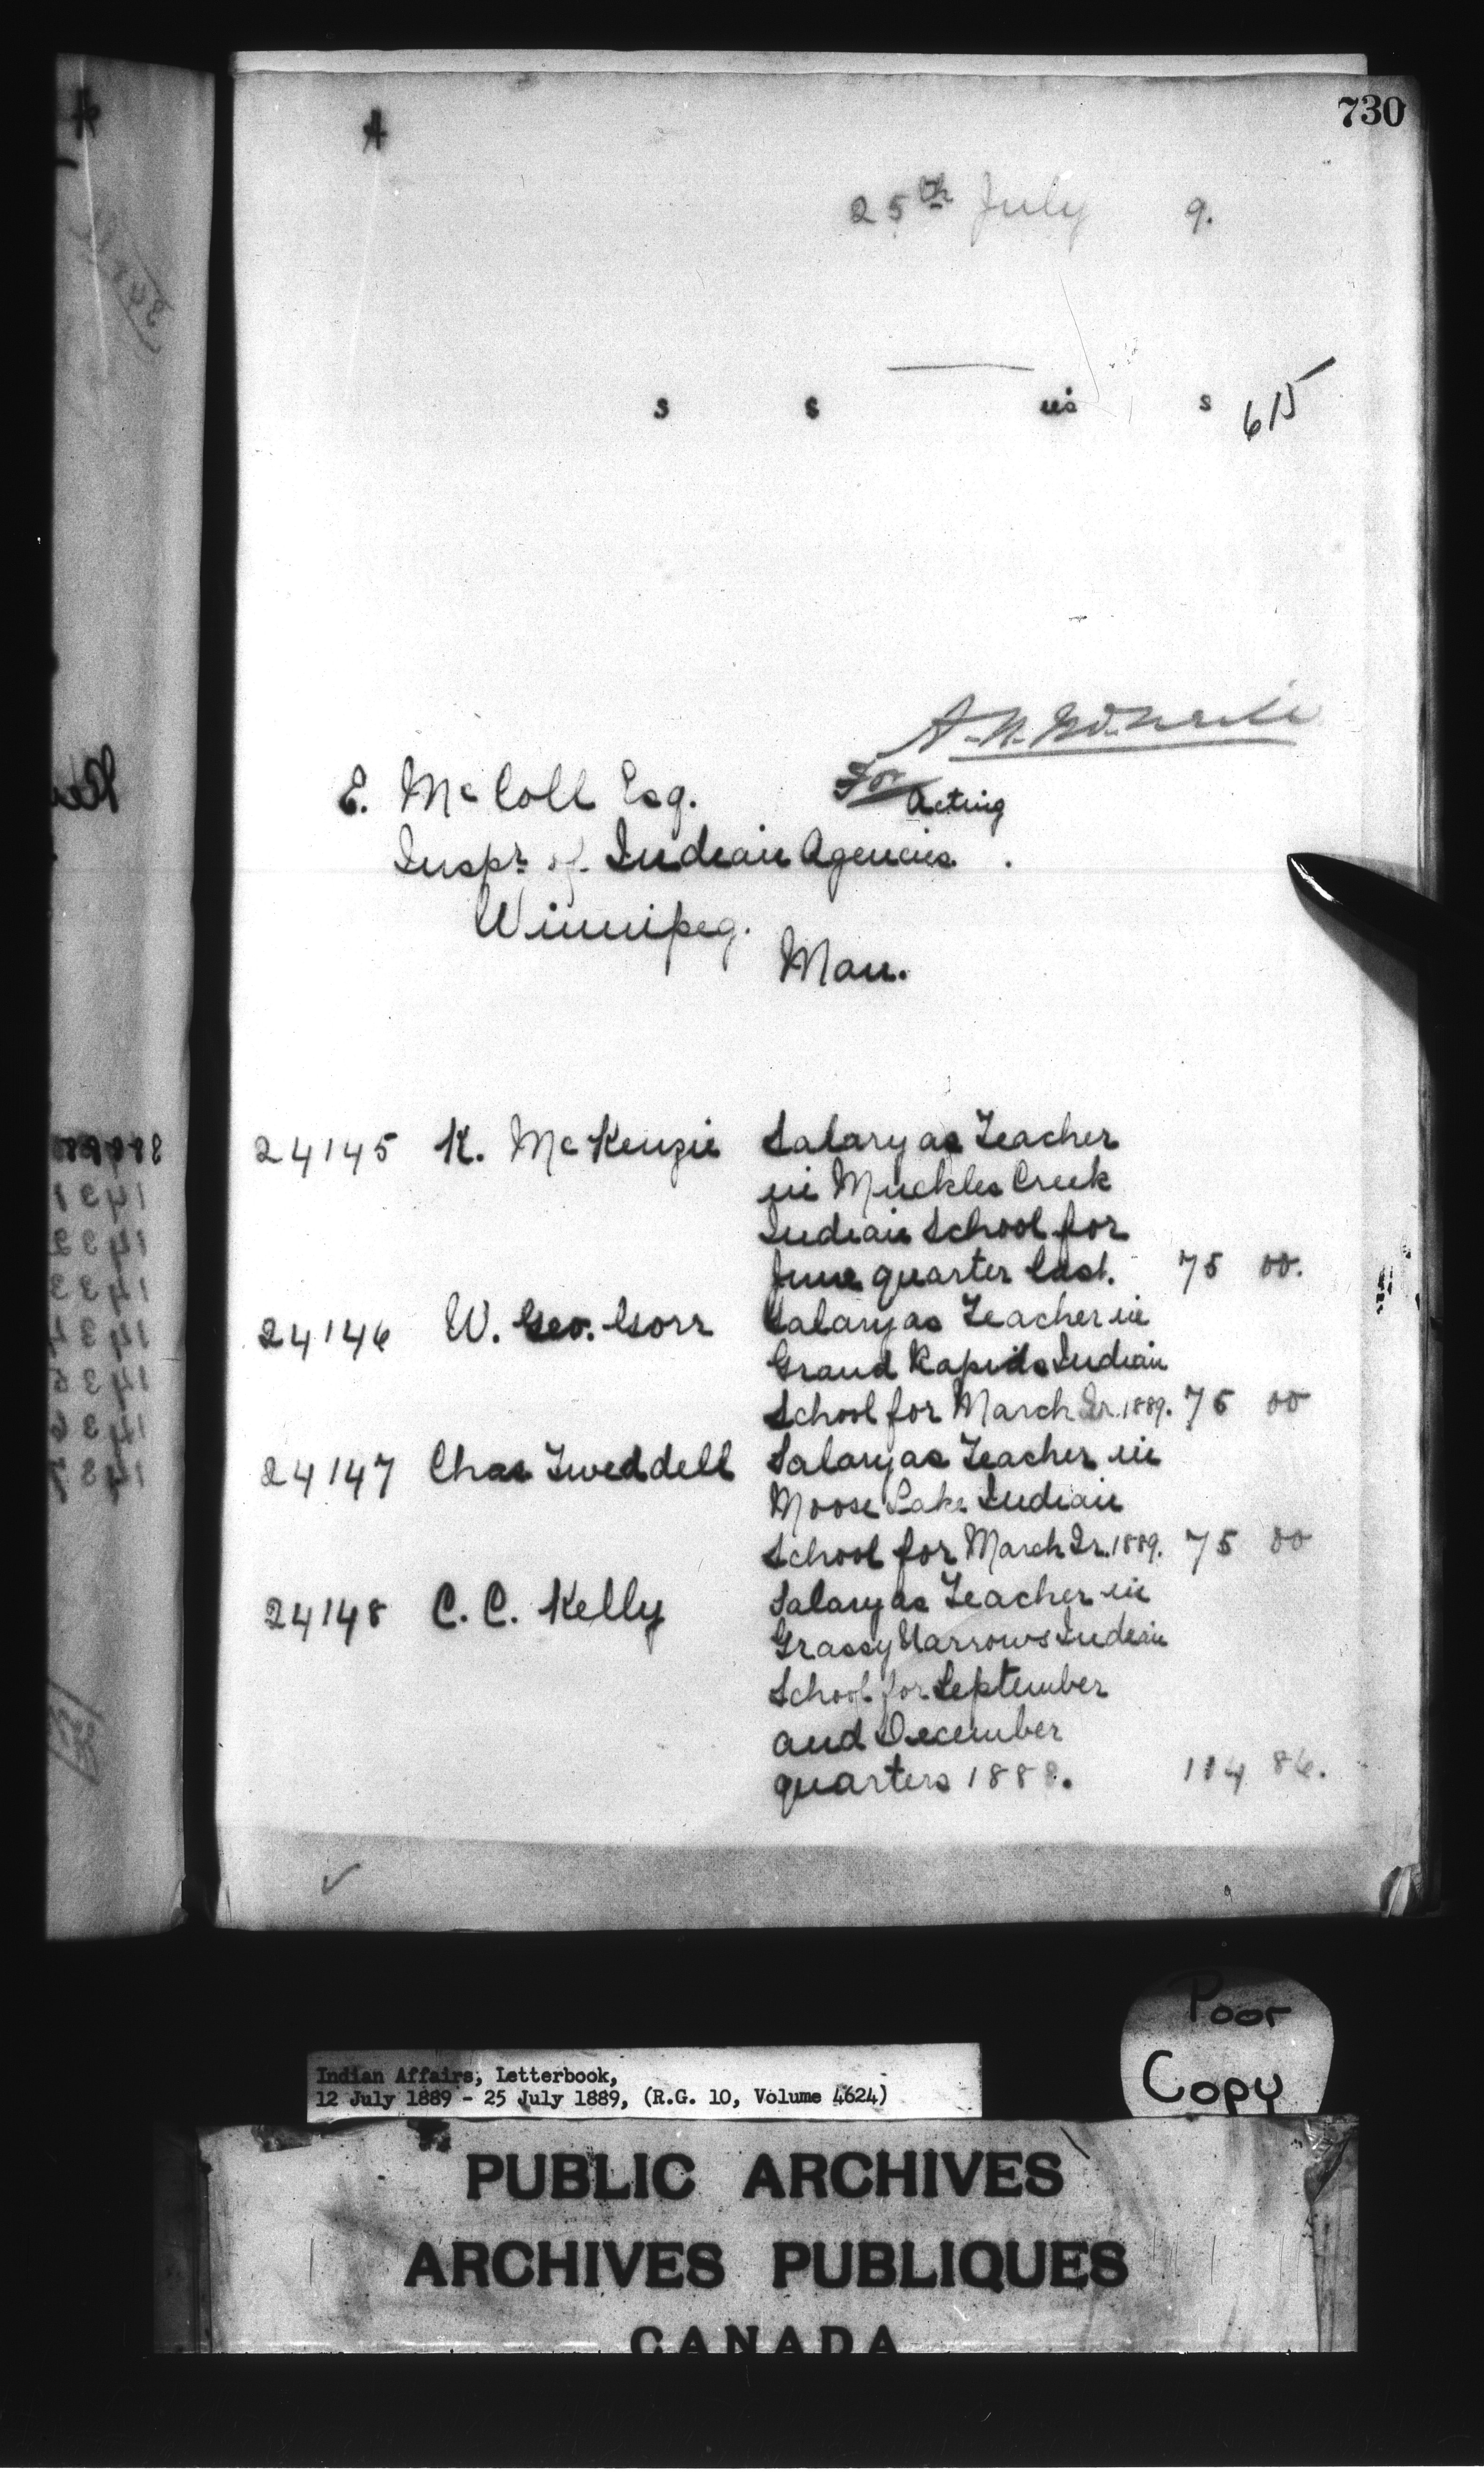 730
A
25th July 9.
s s us s 615
For Acting
E. McColl Esq.
Inspr. of Indian Agencies.
Winnipeg.
Man.
24145 K. McKenzie Salary as Teacher
in Muckles Creek
Indian School for
June quarter last. 75 00.
24146 W. Geo. Gorr Salary as Teacher in
Grand Rapids Indian
School for March Qr. 1889. 75 00
24147 Chas Tweddell Salary as Teacher in
Moose Lake Indian
School for March Qr. 1889. 75 00
24148 C. C. Kelly Salary as Teacher in
Grassy Narrows Indian
School for September
and December
quarters 1888. 114 86.
Poor
Copy
Indian Affairs, Letterbook,
12 July 1889 - 25 July 1889, (R.G. 10, Volume 4624)
PUBLIC ARCHIVES
ARCHIVES PUBLIQUES
CANADA